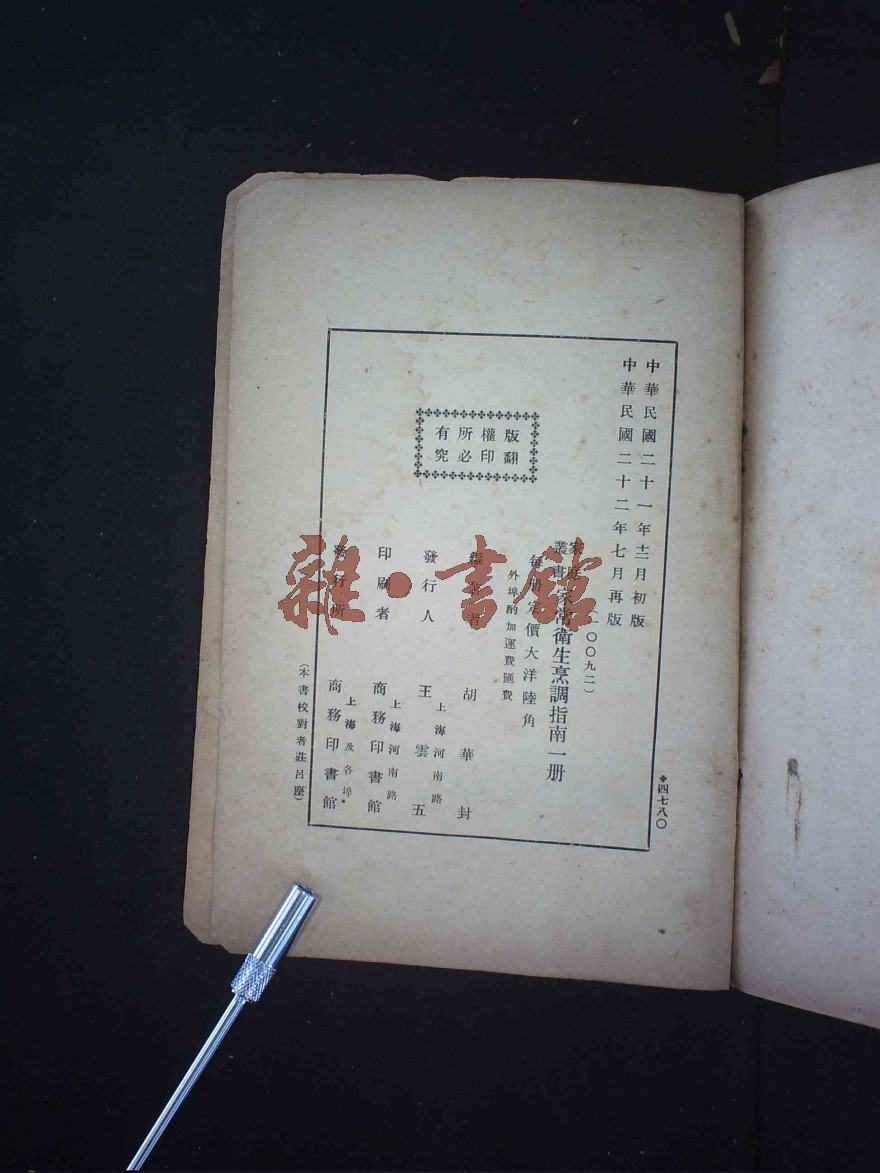 中華民國二十一年十二月初版
中華民國二十二年七月再版
(一〇〇九二)
家庭叢書
家常衛生烹調指南一册
每册定價大洋陸角
外埠酌加運費匯費
版權所有
翻印必究
胡華封
發行人
王雲五
上海河南路
印刷者
商務印書館
上海河南路
發行所
商務印書館
上海及各埠
(本書校對者莊呂塵)
四七八〇
雜·書館